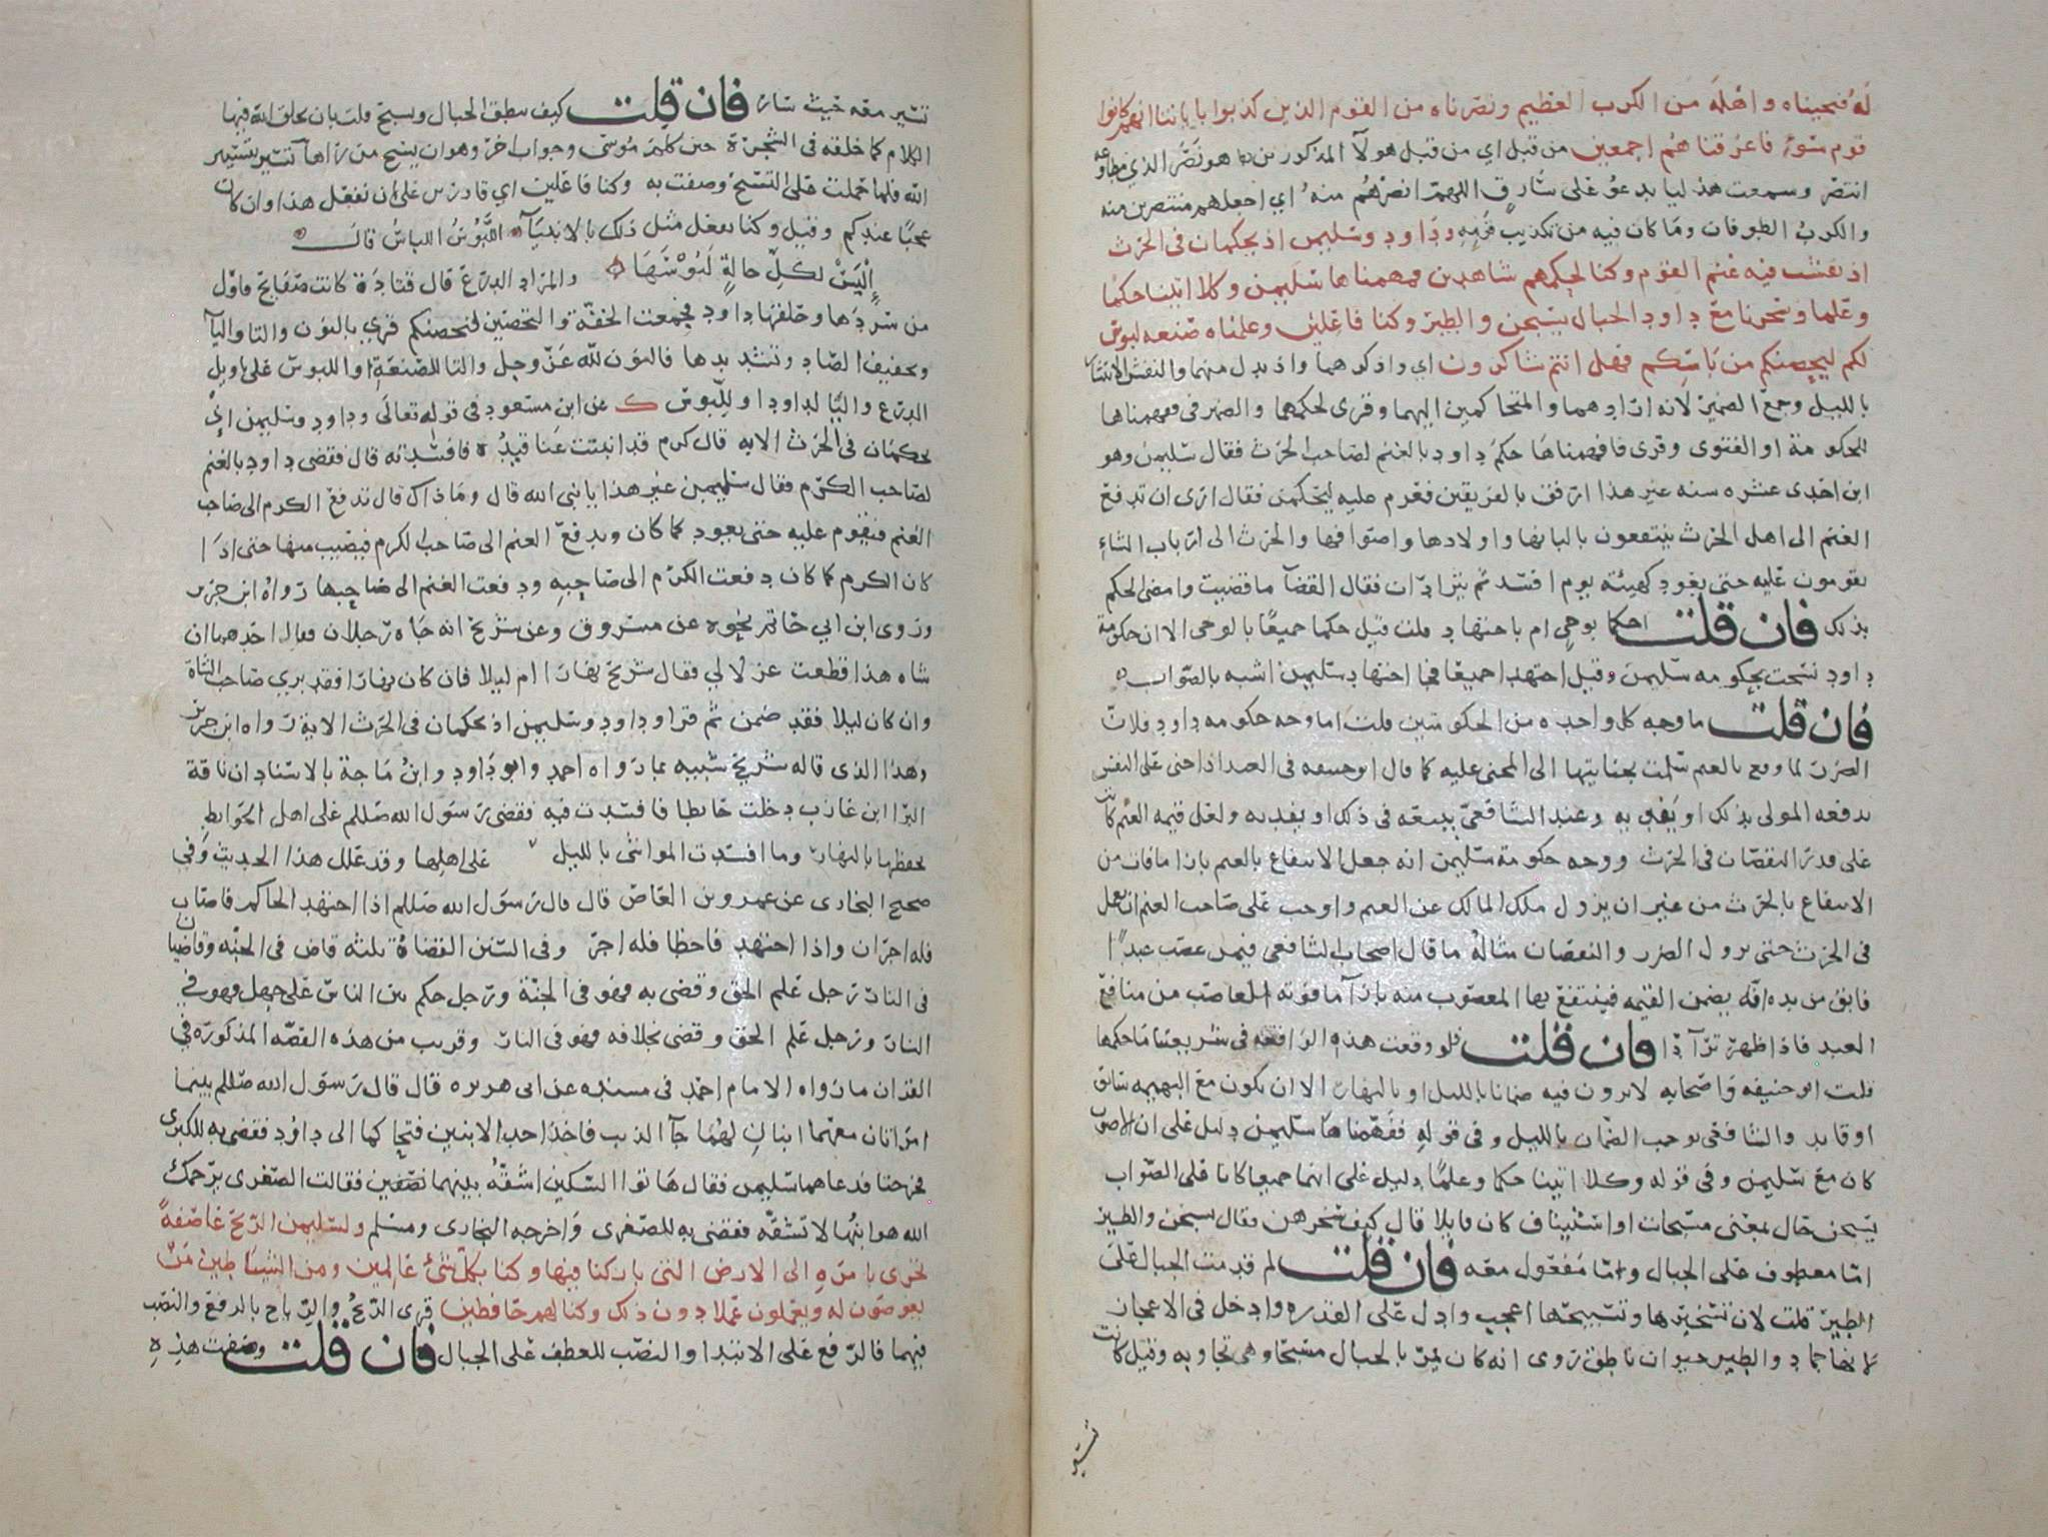 له فنجيناه واهله من الكرب العظيم ونصرناه من القوم الذين كذبوا باياتنا انهم كانوا
قوم سوء فاغرقناهم اجمعين من قبل اي من قبل هولآ المذكورين هو نصر الذي مطاوعه
انتصر وسمعت هذليا يدعو على سارق اللهم انصرهم منه اي اجعلهم منتصرين منه
والكرب الطوفان وما كان فيه من تكذيب قومه وداود وسليمن اذ يحكمان في الحرث
اذ نفشت فيه غنم القوم وكنا لحكمهم شاهدين ففهمناها سليمن وكلا اتينا حكما
وعلما وسخرنا مع داود الجبال يسبحن والطير وكنا فاعلين وعلمناه صنعه لبوس
لكم ليحصنكم من باسكم فهل انتم شاكرون اي واذكرهما واذ بدل منهما والنفش الانتشار
بالليل وجمع الضمير لانه ارادهما والمتحاكمين اليهما وقرى لحكمهما والضمير في ففهمناها
للحكومة او الفتوى وقرى فافهمناها حكم داود بالغنم لصاحب الحرث فقال سليمن وهو
ابن احدى عشره سنه غير هذا ارفق بالفريقين فعزم عليه ليحكمن فقال ارى ان تدفع
الغنم الى اهل الحرث ينتفعون بالبانها واولادها واصوافها والحرث الى ارباب الشاء
يقومون عليه حتى يعود كهيئته يوم افسد ثم يترادان فقال القضآ ما قضيت وامضى الحكم
بذلك فان قلت احكما بوحي ام باجتهاد قلت قيل حكما جميعا بالوحي الا ان حكومة
داود نسخت بحكومه سليمن وقيل اجتهدا جميعا فجا اجتهاد سليمن اشبه بالصواب
فان قلت ما وجه كل واحده من الحكومتين قلت اما وجه حكومه داود فلان
الضرر لما وقع بالغنم سلمت بجنايتها الى المجني عليه كما قال ابو حنيفه في العبد اذا جنى على النفس
يدفعه المولى بذلك او يفديه وعند الشافعي يبيعه في ذلك او يفديه ولعل قيمه الغنم كانت
على قدر النقصان في الحرث ووجه حكومة سليمن انه جعل الانتفاع بالغنم بازا ما فات من
الانتفاع بالحرث من غير ان يزول ملك المالك عن الغنم واوجب على صاحب الغنم ان يعمل
في الحرث حتى يزول الضرر والنقصان مثاله ما قال اصحاب الشافعي فيمن غصب عبدا
فابق من يده انه يضمن القيمه فينتفع بها المغصوب منه بازآ ما فوته الغاصب من منافع
العبد فاذا ظهر ترآدا فان قلت فلو وقعت هذه الواقعه في شريعتنا ما حكمها
قلت ابو حنيفه واصحابه لا يرون فيه ضمانا بالليل او بالنهار الا ان يكون مع البهيمه سائق
او قايد والشافعي يوجب الضمان بالليل وفي قوله ففهمناها سليمن دليل على ان الاصوب
كان مع سليمن وفي قوله وكلا اتينا حكما وعلما دليل على انهما جميعا كانا على الصواب
يسبحن حال بمعنى مسبحات او استيناف كان قايلا قال كيف سخرهن فقال يسبحن والطير
اما معطوف على الجبال واما مفعول معه فان قلت لم قدمت الجبال على
الطير قلت لان تسخيرها وتسبيحها اعجب وادل على القدره وادخل في الاعجاز
لانها جماد والطير حيوان ناطق روى انه كان يمر بالجبال مسبحا وهي تجاوبه وقيل كانت
تسير
تسير معه حيث سار فان قلت كيف تنطق الجبال وتسبح قلت بان يخلق الله فيها
الكلام كما خلقه في الشجرة حين كلم موسى وجواب اخر وهو ان يسبح من راها تسير بتسيير
الله فلما حملت على التسبيح وصفت به وكنا فاعلين اي قادرين على ان نفعل هذا وان كان
عجبا عندكم وقيل وكنا نفعل مثل ذلك بالانبيآ اللبوس اللباس قال
اِلْبَسْ لكل حالةٍ لبوسها والمراد الدرع قال قتادة كانت صفايح فاول
من سردها وحلقها داود فجمعت الخفة والتحصين لتحصنكم قري بالنون والتا واليآ
وتخفيف الصاد وتشديدها فالنون لله عز وجل والتا للصنعة او للبوس على تاويل
الدرع واليا لداود او للبوس ك عن ابن مسعود في قوله تعالى وداود وسليمن اذ
يحكمان في الحرث الايه قال كرم قد انبتت عناقيده فافسدته قال فقضى داود بالغنم
لصاحب الكرم فقال سليمن غير هذا يا نبي الله قال وما ذاك قال تدفع الكرم الى صاحب
الغنم فيقوم عليه حتى يعود كما كان وتدفع الغنم الى صاحب الكرم فيصيب منها حتى اذا
كان الكرم كما كان دفعت الكرم الى صاحبه ودفعت الغنم الى صاحبها رواه ابن جرير
وروى ابن ابي حاتم نحوه عن مسروق وعن شريح انه جاه رجلان فقال احدهما ان
شاه هذا قطعت غزلا لي فقال شريح نهارا ام ليلا فان كان نهارا فقد بري صاحب الشاة
وان كان ليلا فقد ضمن ثم قرا وداود وسليمن اذ يحكمان في الحرث الاية رواه ابن جرير
وهذا الذى قاله شريح شبيه بما رواه احمد وابو داود وابن ماجة بالاسناد ان ناقة
البرا ابن عازب دخلت حايطا فافسدت فيه فقضى رسول الله صللم على اهل الحوايط
بحفظها بالنهار وما افسدت المواشي بالليل على اهلها وقد علل هذا الحديث وفي
صحيح البخارى عن عمرو بن العاص قال قال رسول الله صللم اذا اجتهد الحاكم فاصاب
فله اجران واذا اجتهد فاخطا فله اجر وفي السنن القضاة ثلثه قاض في الجنه وقاضيان
في النار رجل علم الحق وقضى به فهو في الجنة ورجل حكم بين الناس على جهل فهو في
النار ورجل علم الحق وقضى بخلافه فهو في النار وقريب من هذه القصه المذكوره في
القران ما رواه الامام احمد في مسنده عن ابى هريره قال قال رسول الله صللم بينما
امراتان معهما ابنان لهما جآ الذيب فاخذ احد الابنين فتحاكما الى داود فقضى به للكبرى
فخرجتا فدعاهما سليمن فقال هاتوا السكين اشقه بينهما نصفين فقالت الصغرى يرحمك
الله هو ابنها لا تشقه فقضى به للصغرى واخرجه البخارى ومسلم ولسليمن الريح عاصفة
تجرى بامره الى الارض التى باركنا فيها وكنا بكل شئ عالمين ومن الشياطين من
يغوصون له ويعملون عملا دون ذلك وكنا لهم حافظين قرى الريح والرياح بالرفع والنصب
فيهما فالرفع على الابتدا والنصب للعطف على الجبال فان قلت وصفت هذه